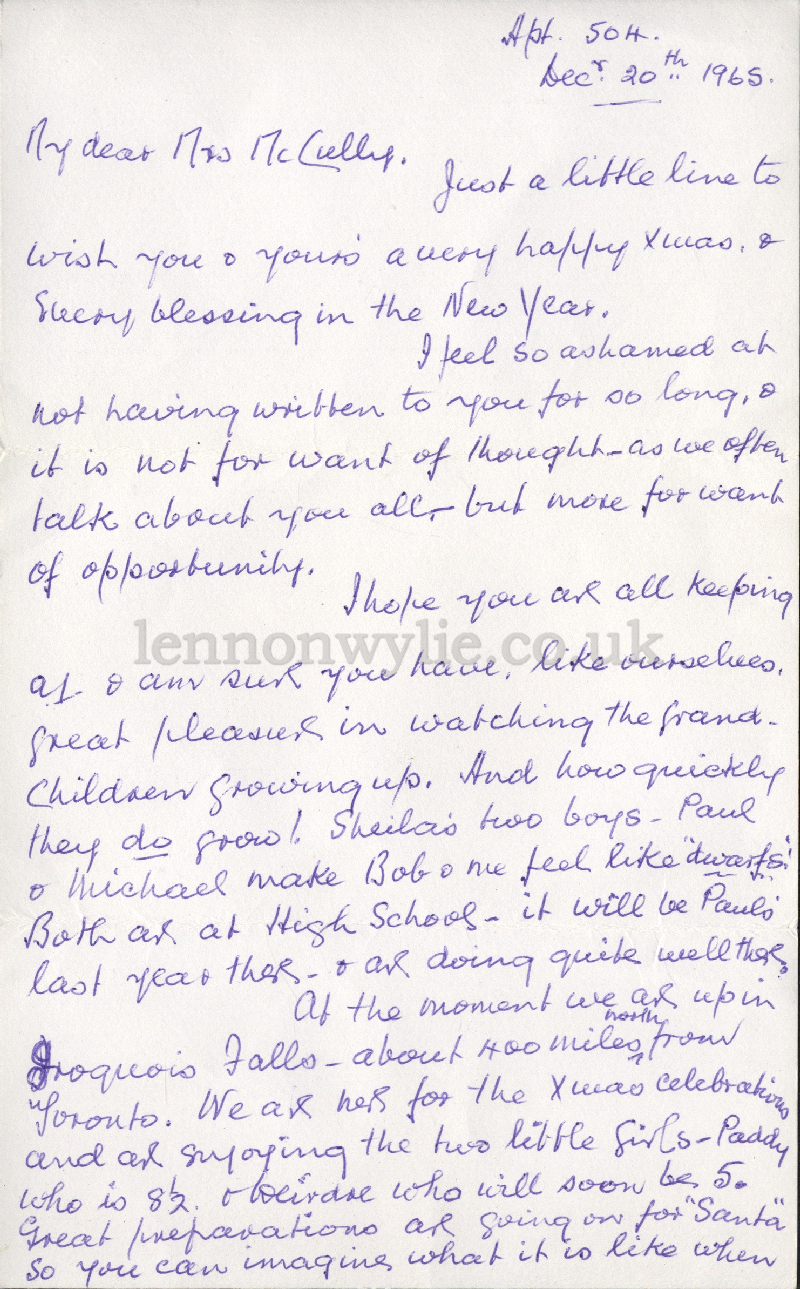 Apt. 504.
Decr. 20th 1965.
My dear Mrs McCully.
Just a little line to
wish you & yours a very happy Xmas, &
every blessing in the New Year.
I feel so ashamed at
not having written to you for so long, &
it is not for want of thought - as we often
talk about you all, - but more for want
of opportunity.
I hope you are all keeping
lennonwylie.co.uk
A1 - & am sure you have, like ourselves,
great pleasure in watching the grand-
children growing up. And how quickly
they do grow! Sheila's two boys - Paul
& Michael make Bob & me feel like "dwarfs"
Both are at High School - it will be Paul's
last year there - & are doing quite well there.
At the moment we are up in
Iroquois Falls - about 400 miles north from
Toronto. We are here for the Xmas celebrations
and are enjoying the two little girls - Paddy
who is 8½. & Deirdre who will soon be 5.
Great preparations are going on for "Santa"
so you can imagine what it is like when